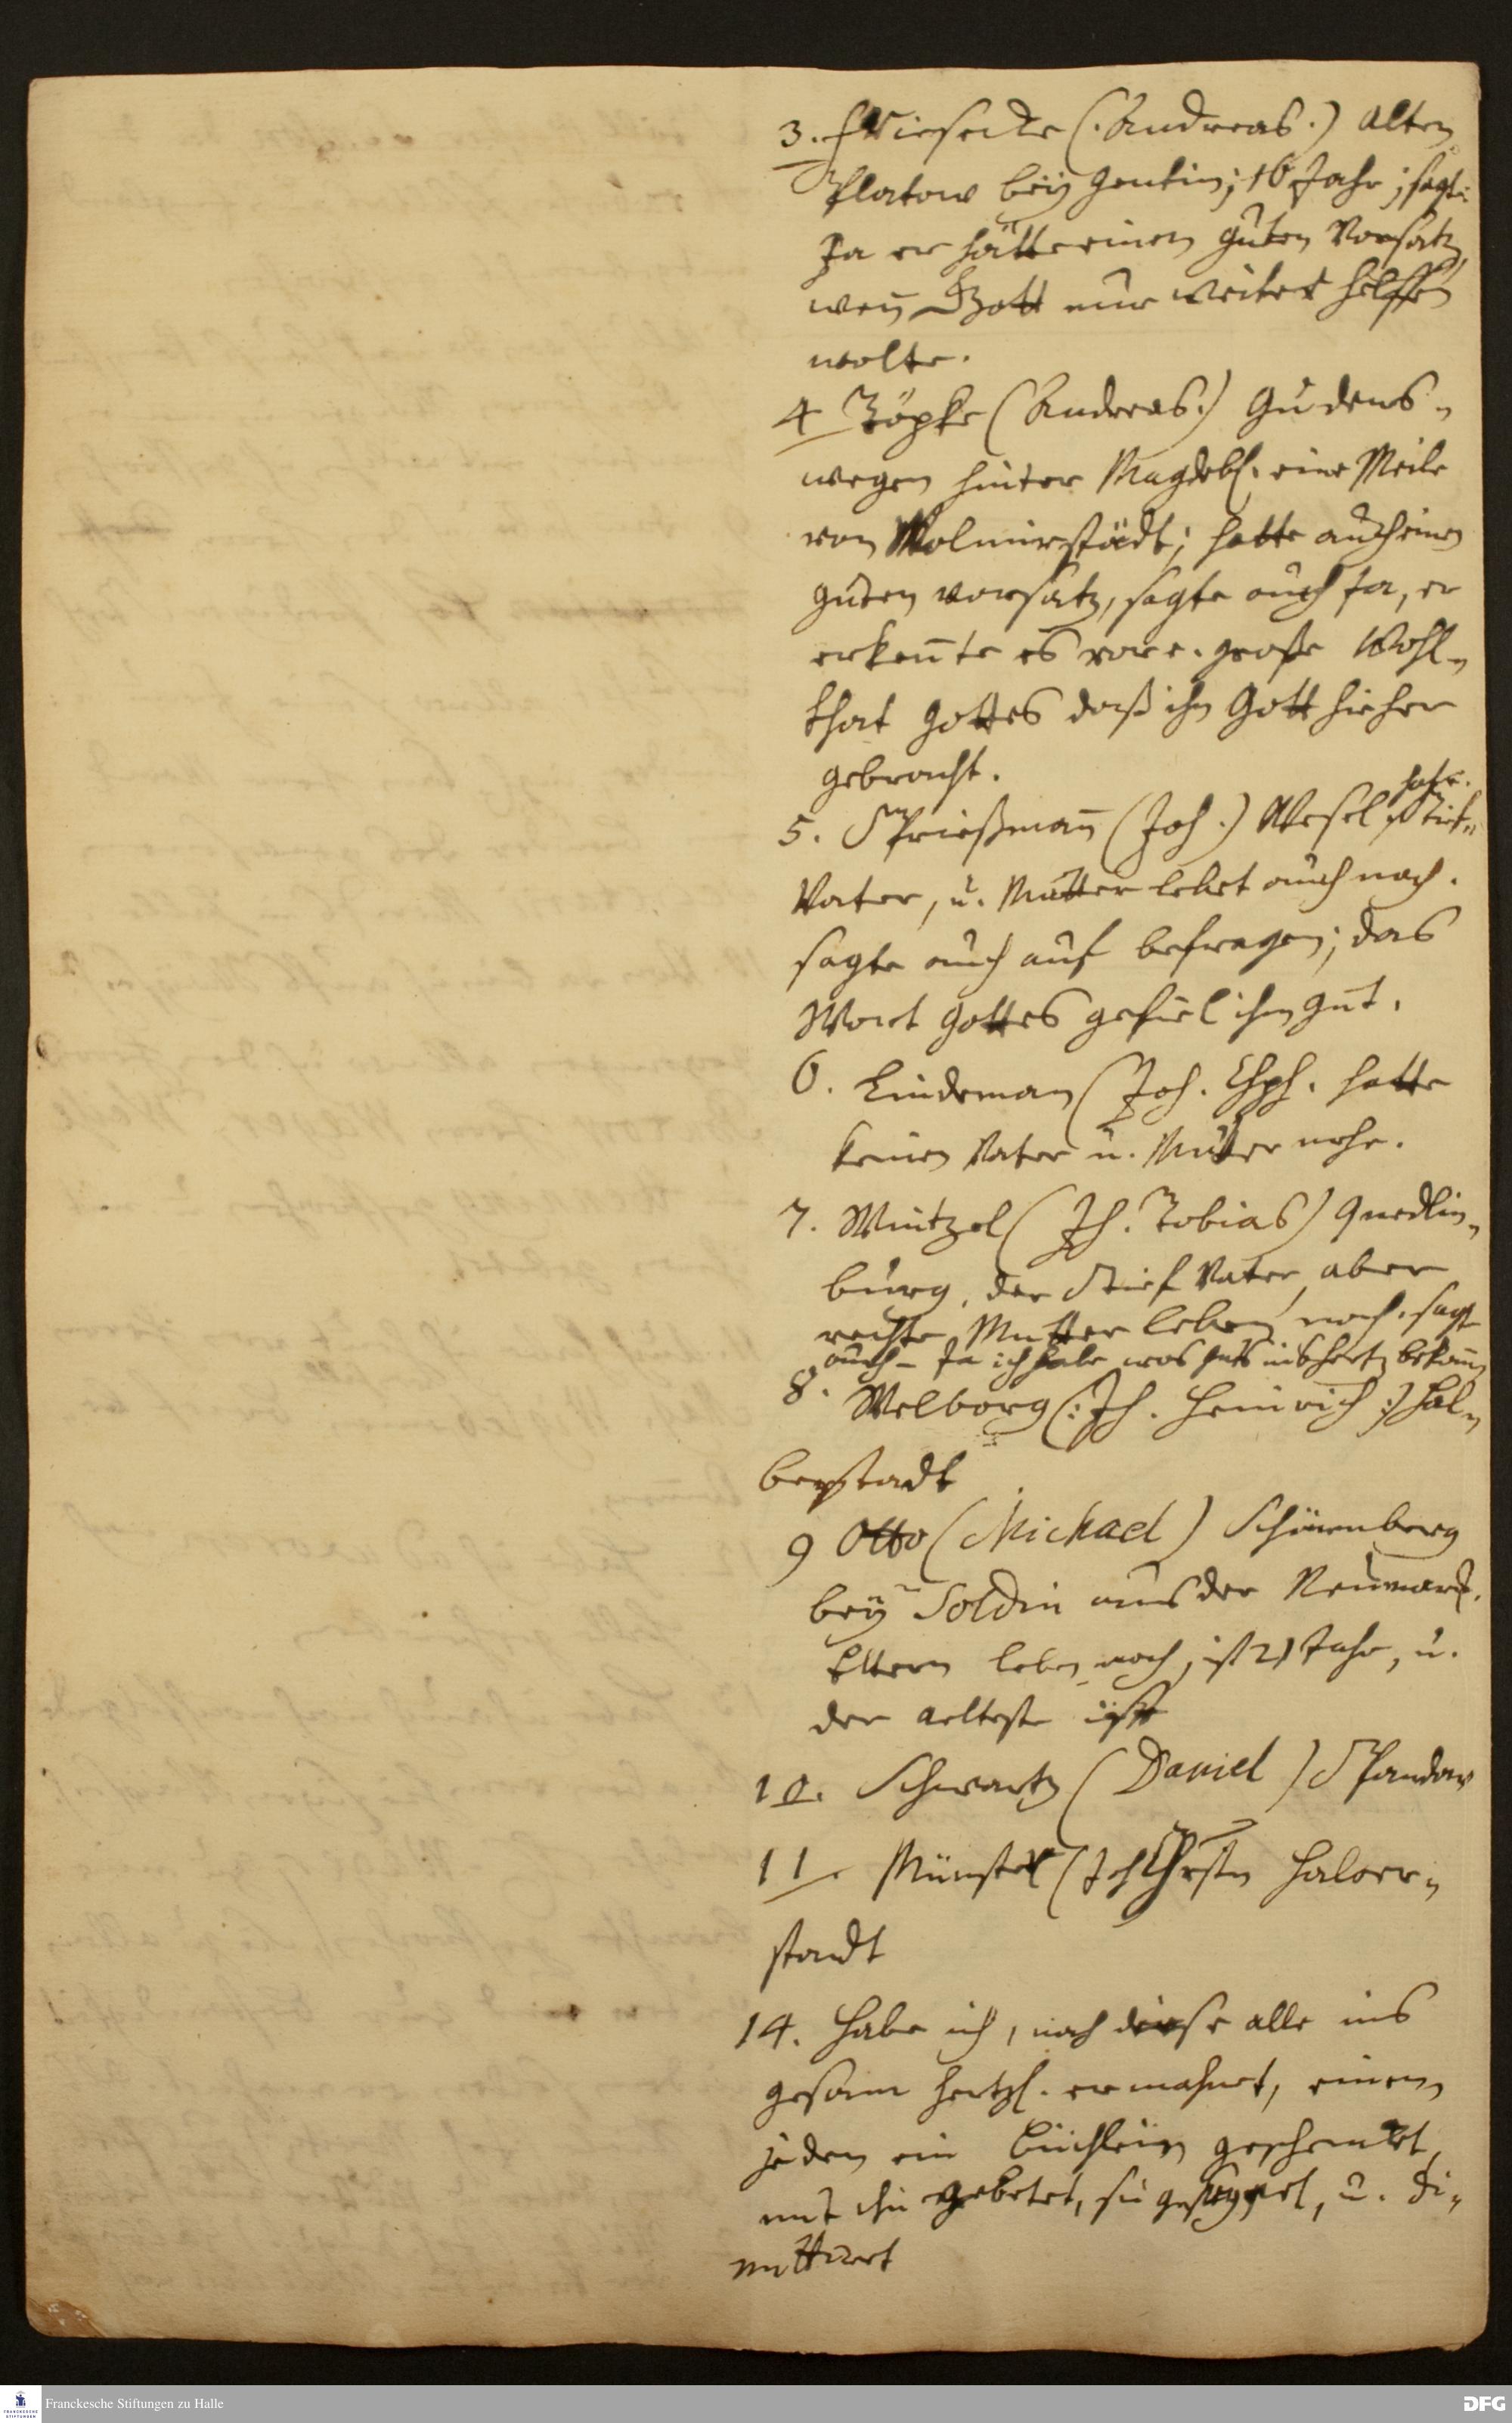 3. Friesecke (. Andreas.) Alten
Platow beÿ Gentin; 16 Jahr; sagt:
Ja er hätte einen guten Vorsatz,
weñ Gott nur weiter helffen
wolte.
4 Töpke (Andreas.) Gudens-
wegen hinter Magdebl. eine Meile
von Wolmirstädt; hatte auch einen
guten vorsatz, sagte auch ja, er
erkeñte es vor e. große Wohl-
that Gottes daß ihn Gott hieher
gebracht.
5. Prießmañ (Joh.) Wesel hat e. Stief-
Vater, u. Mutter lebet auch noch.
sagte auch auf befragen; das
Wort Gottes gefiel ihm gut.
6. Lindeman (Joh. Chph. hatte
keinen Vater u. Mutter mehr.
7. Wintzel (Jh. Tobias) Quedlin-
burg, der Stief Vater, aber
rechte Mutter leben noch. sagt
auch - Ja ich habe was guts ins Hertz bekom̃en
8. Welborg (: Jh. Heinrich :) Hal-
berstadt
9 Otto (Michael) Schönenberg
beÿ Soldin aus der Neumark.
Eltern leben noch, ist 21 Jahr, u.
der aelteste ist
10. Schwartz (Daniel) Spandow
11. Münster (Joh Christn Halber-
stadt
14. Habe ich, nach diese alle ins
gesam hertzl. ermahnet, einem
jeden ein Büchlein geschencket,
mit ihn gebetet, sie gesegnet, u. di-
mittiret
Franckesche Stiftungen zu Halle
DFG